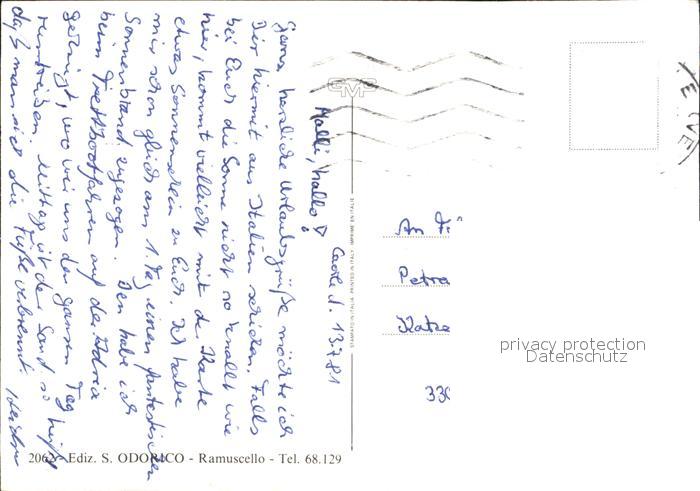 Caorle d. 13.7.81
Halli, hallo!
Ganz herzliche Urlaubsgrüße möchte ich
Dir hiermit aus Italien schicken. Falls
bei Euch die Sonne nicht so knallt wie
hier, kommt vielleicht mit de Karte
etwas Sonnenschein zu Euch. Ich habe
mir schon gleich am 1. Tag einen fantastischen
Sonnenbrand zugezogen. Den habe ich
beim Tretbootfahren auf der Adria
gekriegt, wo wir uns den ganzen Tag
rumtreiben. Mittags ist der Sand so heiß
daß man sich die Füße verbrennt.
An Fr
Petra
Katze
330
privacy protection
Datenschutz
STAMPATO IN ITALIA - PRINTED IN ITALY - IMPRIME EN ITALIE
2062 - Ediz. S. ODORICO - Ramuscello - Tel. 68.129